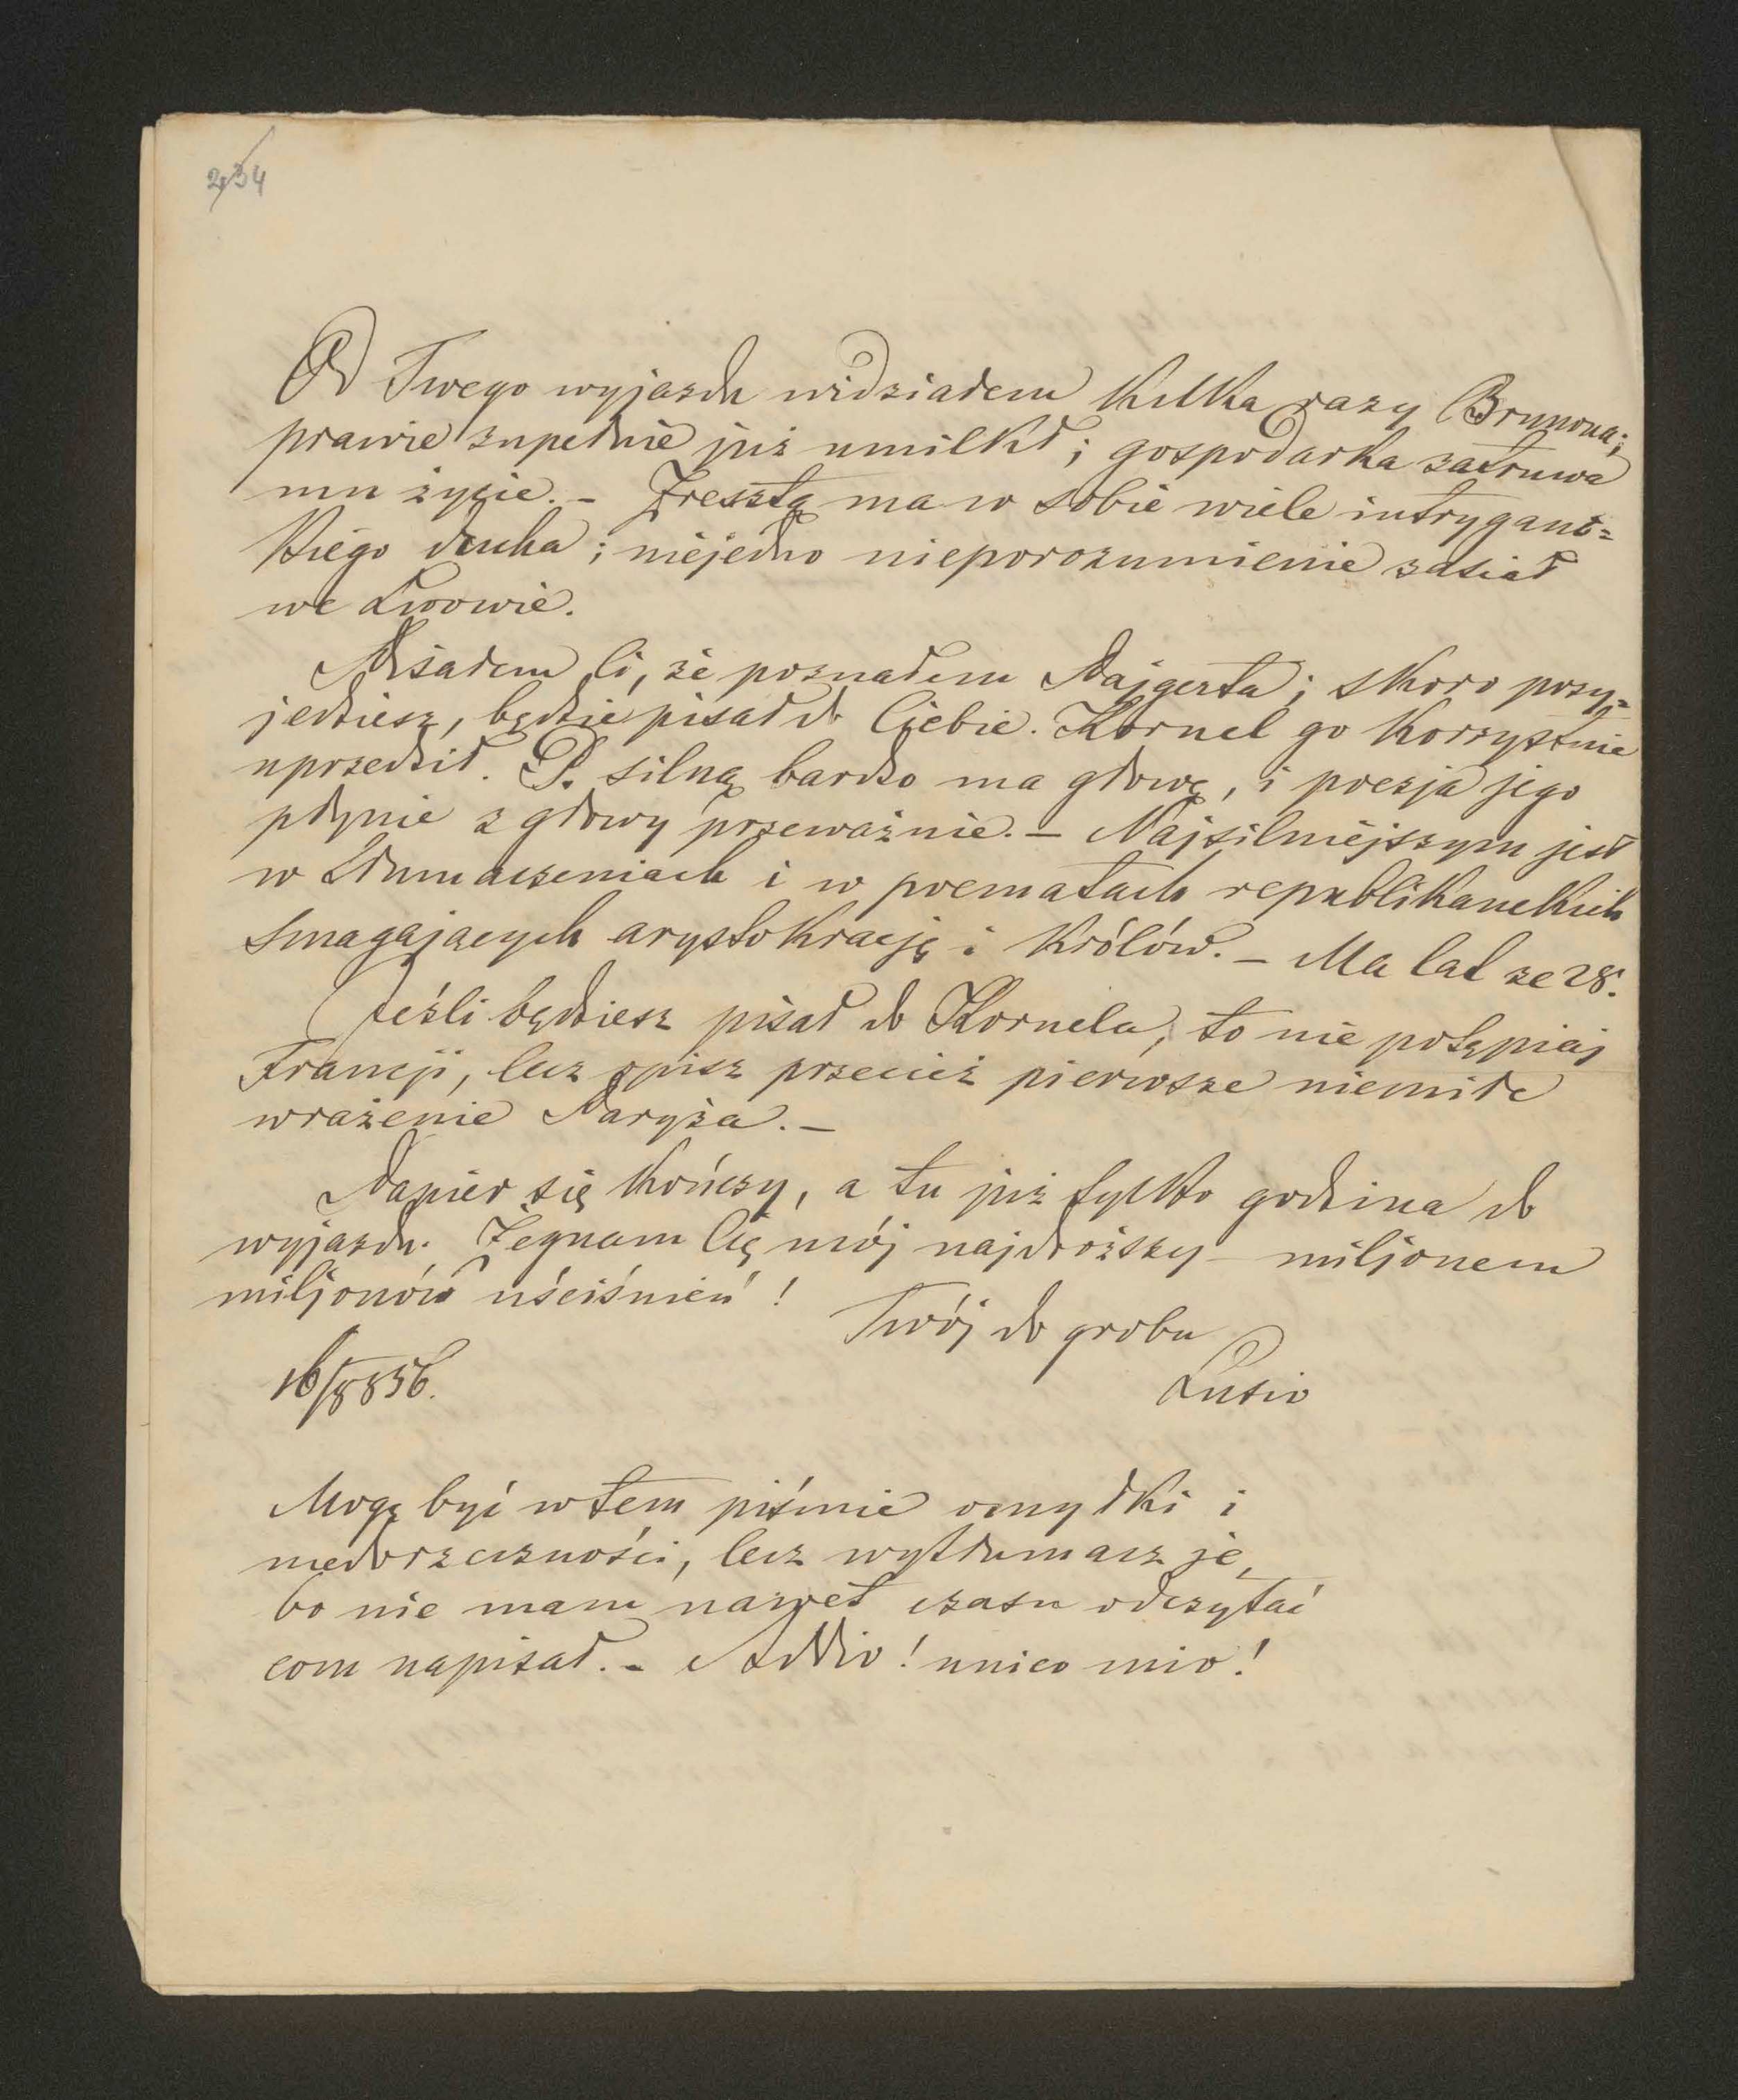 234
Od Twego wyjazdu widziałem kilka razy Brunona;
prawie zupełnie już umilkł; gospodarka zatruwa
mu życie. – Zresztą ma w sobie wiele intrygant=
skiego ducha; niejedno nieporozumienie zasiał
we Lwowie.
Pisałem Ci, że poznałem Pajgerta; skoro przy=
jedziesz, będzie pisał do Ciebie. Kornel go korzystnie
uprzedził. P. silną bardzo ma głowę, i poezja jego
płynie z głowy przeważnie. – Najsilniejszym jest
w tłumaczeniach i w poematach republikanckich
smagających arystokrację i królów. – Ma lat ze 28.
Jeśli będziesz pisał do Kornela, to nie potępiaj
Francji, lecz opisz przecież pierwsze niemiłe
wrażenie Paryża. –
Papier się kończy, a tu już tylko godzina do
wyjazdu. Żegnam Cię mój najdroższy – miljonem
miljonów uściśnień!
Twój do grobu
16/8 856.
Lusio
Mogą być w tem piśmie omyłki i
niedorzeczności, lecz wytłumacz je,
bo nie mam nawet czasu odczytać
com napisał. – Addio! unico mio!